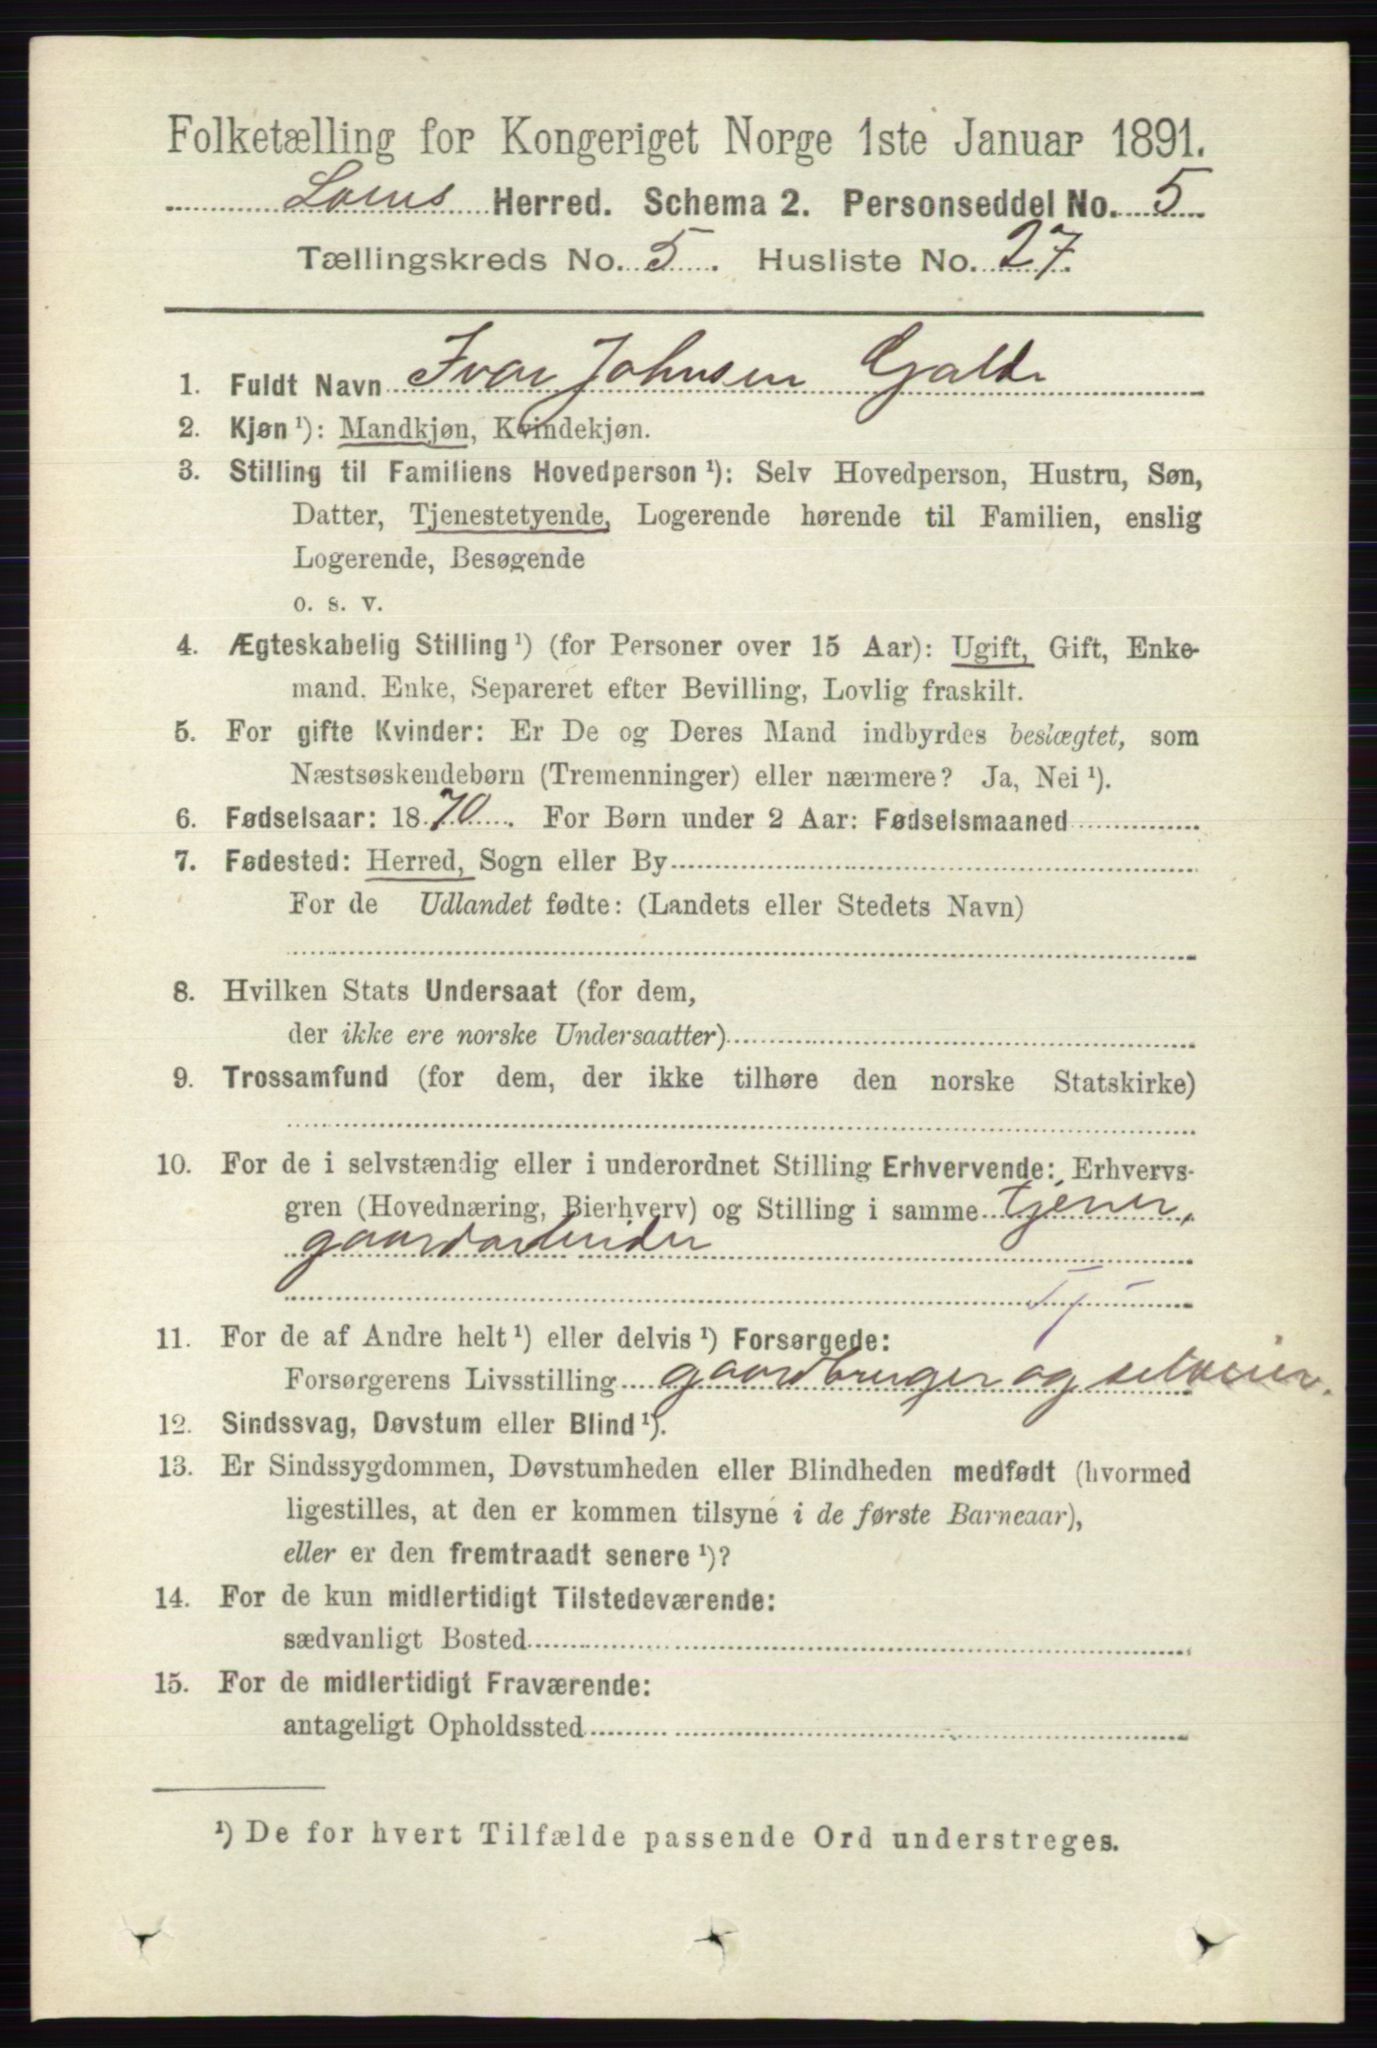 Folketælling for Kongeriget Norge 1ste Januar 1891.
Loms Herred. Schema 2. Personseddel No. 5
Tællingskreds No. 5. Husliste No. 27.
1. Fuldt Navn Ivar Johnsen Galde
2. Kjøn ¹): Mandkjøn, Kvindekjøn.
3. Stilling til Familiens Hovedperson ¹): Selv Hovedperson, Hustru, Søn,
Datter, Tjenestetyende, Logerende hørende til Familien, enslig
Logerende, Besøgende
o. s. v.
4. Ægteskabelig Stilling ¹) (for Personer over 15 Aar): Ugift, Gift, Enke-
mand, Enke, Separeret efter Bevilling, Lovlig fraskilt.
5. For gifte Kvinder: Er De og Deres Mand indbyrdes beslægtet, som
Næstsøskendebørn (Tremenninger) eller nærmere? Ja, Nei ¹).
6. Fødselsaar: 1870. For Børn under 2 Aar: Fødselsmaaned
7. Fødested: Herred, Sogn eller By
For de Udlandet fødte: (Landets eller Stedets Navn)
8. Hvilken Stats Undersaat (for dem,
der ikke ere norske Undersaatter)
9. Trossamfund (for dem, der ikke tilhøre den norske Statskirke)
10. For de i selvstændig eller i underordnet Stilling Erhvervende: Erhvervs-
gren (Hovednæring, Bierhverv) og Stilling i samme tjener,
gaardarbeider
11. For de af Andre helt ¹) eller delvis ¹) Forsørgede:
Forsørgerens Livsstilling gaardbruger og selveier.
12. Sindssvag, Døvstum eller Blind ¹).
13. Er Sindssygdommen, Døvstumheden eller Blindheden medfødt (hvormed
ligestilles, at den er kommen tilsyne i de første Barneaar),
eller er den fremtraadt senere ¹)?
14. For de kun midlertidigt Tilstedeværende:
sædvanligt Bosted
15. For de midlertidigt Fraværende:
antageligt Opholdssted
¹) De for hvert Tilfælde passende Ord understreges.